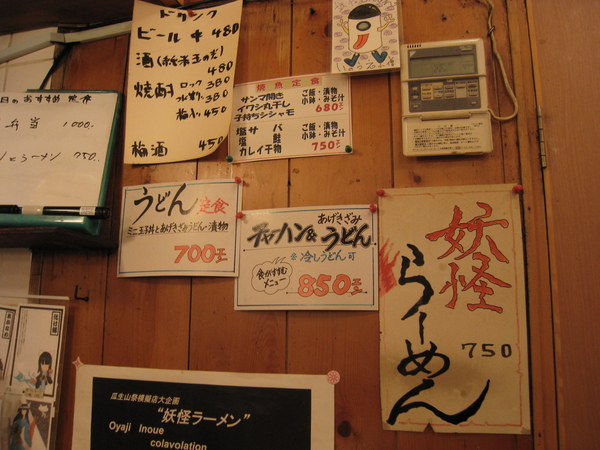 ドリンク
ビール 中 480
酒
480
焼酎 ロック 380
水割り 380
梅入り 450
梅酒 450
日のおすすめ 定食
弁当 1,000.
ラーメン 750.
焼魚定食
サンマ開き
イワシ丸干し
子持ちシシャモ
ご飯・漬物
小鉢・みそ汁
680
塩サバ
塩鮭
カレイ干物
ご飯・漬物
小鉢・みそ汁
750
うどん定食
ミニ玉子丼とあげきざみうどん・漬物
700
チャーハン&あげきざみうどん
※冷しうどん可
食がすすむ
メニュー
850
妖怪
らーめん
750
瓜生山祭模擬店大企画
"妖怪ラーメン"
Oyaji Inoue
colavolation